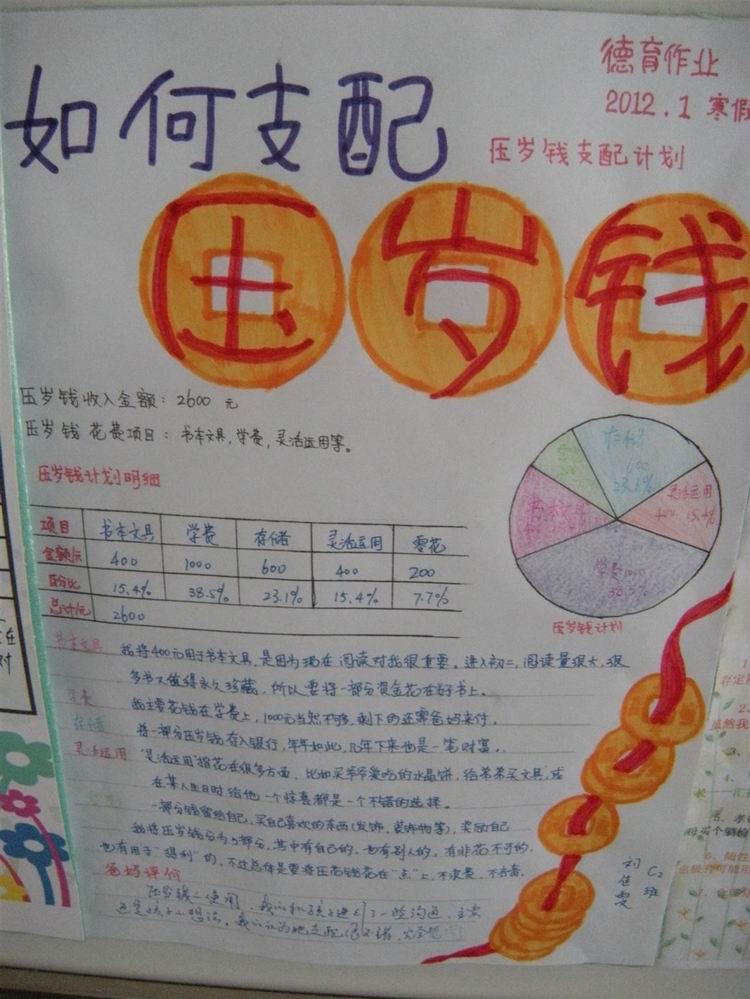 如何支配
德育作业
2012.1 寒假
压岁钱支配计划
压岁钱
压岁钱收入金额：2600 元
压岁钱花费项目：书本文具，学费，灵活运用等。
压岁钱计划明细
项目 书本文具 学费 存储 灵活运用 零花
金额/元 400 1000 600 400 200
百分比 15.4% 38.5% 23.1% 15.4% 7.7%
总计/元 2600
存储
600
23.1%
灵活运用
400 15.4%
书本文具
学费1000
38.5%
压岁钱计划
书本文具 我将400元用于书本文具，是因为现在阅读对我很重要。进入初二，阅读量很大，很
多书又值得永久珍藏，所以要将一部分资金花在好书上。
学费 我主要花钱在学费上，1000元当然不够，剩下的还需爸妈来付。
存储 将一部分压岁钱存入银行，年年如此，几年下来也是一笔财富。
灵活运用 "灵活运用"指花在很多方面，比如买爷爷爱吃的水晶饼，给弟弟买文具，或
在某人生日时给他一个惊喜都是一个不错的选择。
一部分钱留给自己，买自己喜欢的东西(发饰，装饰物等)，奖励自己
我将压岁钱分为5部分，其中有自己的，也有别人的，有非花不可的，
也有用于"得利"的，不过总体是要将压岁钱花在"点"上，不浪费，不吝啬。
爸妈评价
压岁钱的使用，我们和孩子进行了一些沟通，主要
还是孩子的想法，我们认为她支配得不错，完全
C2
班
刘